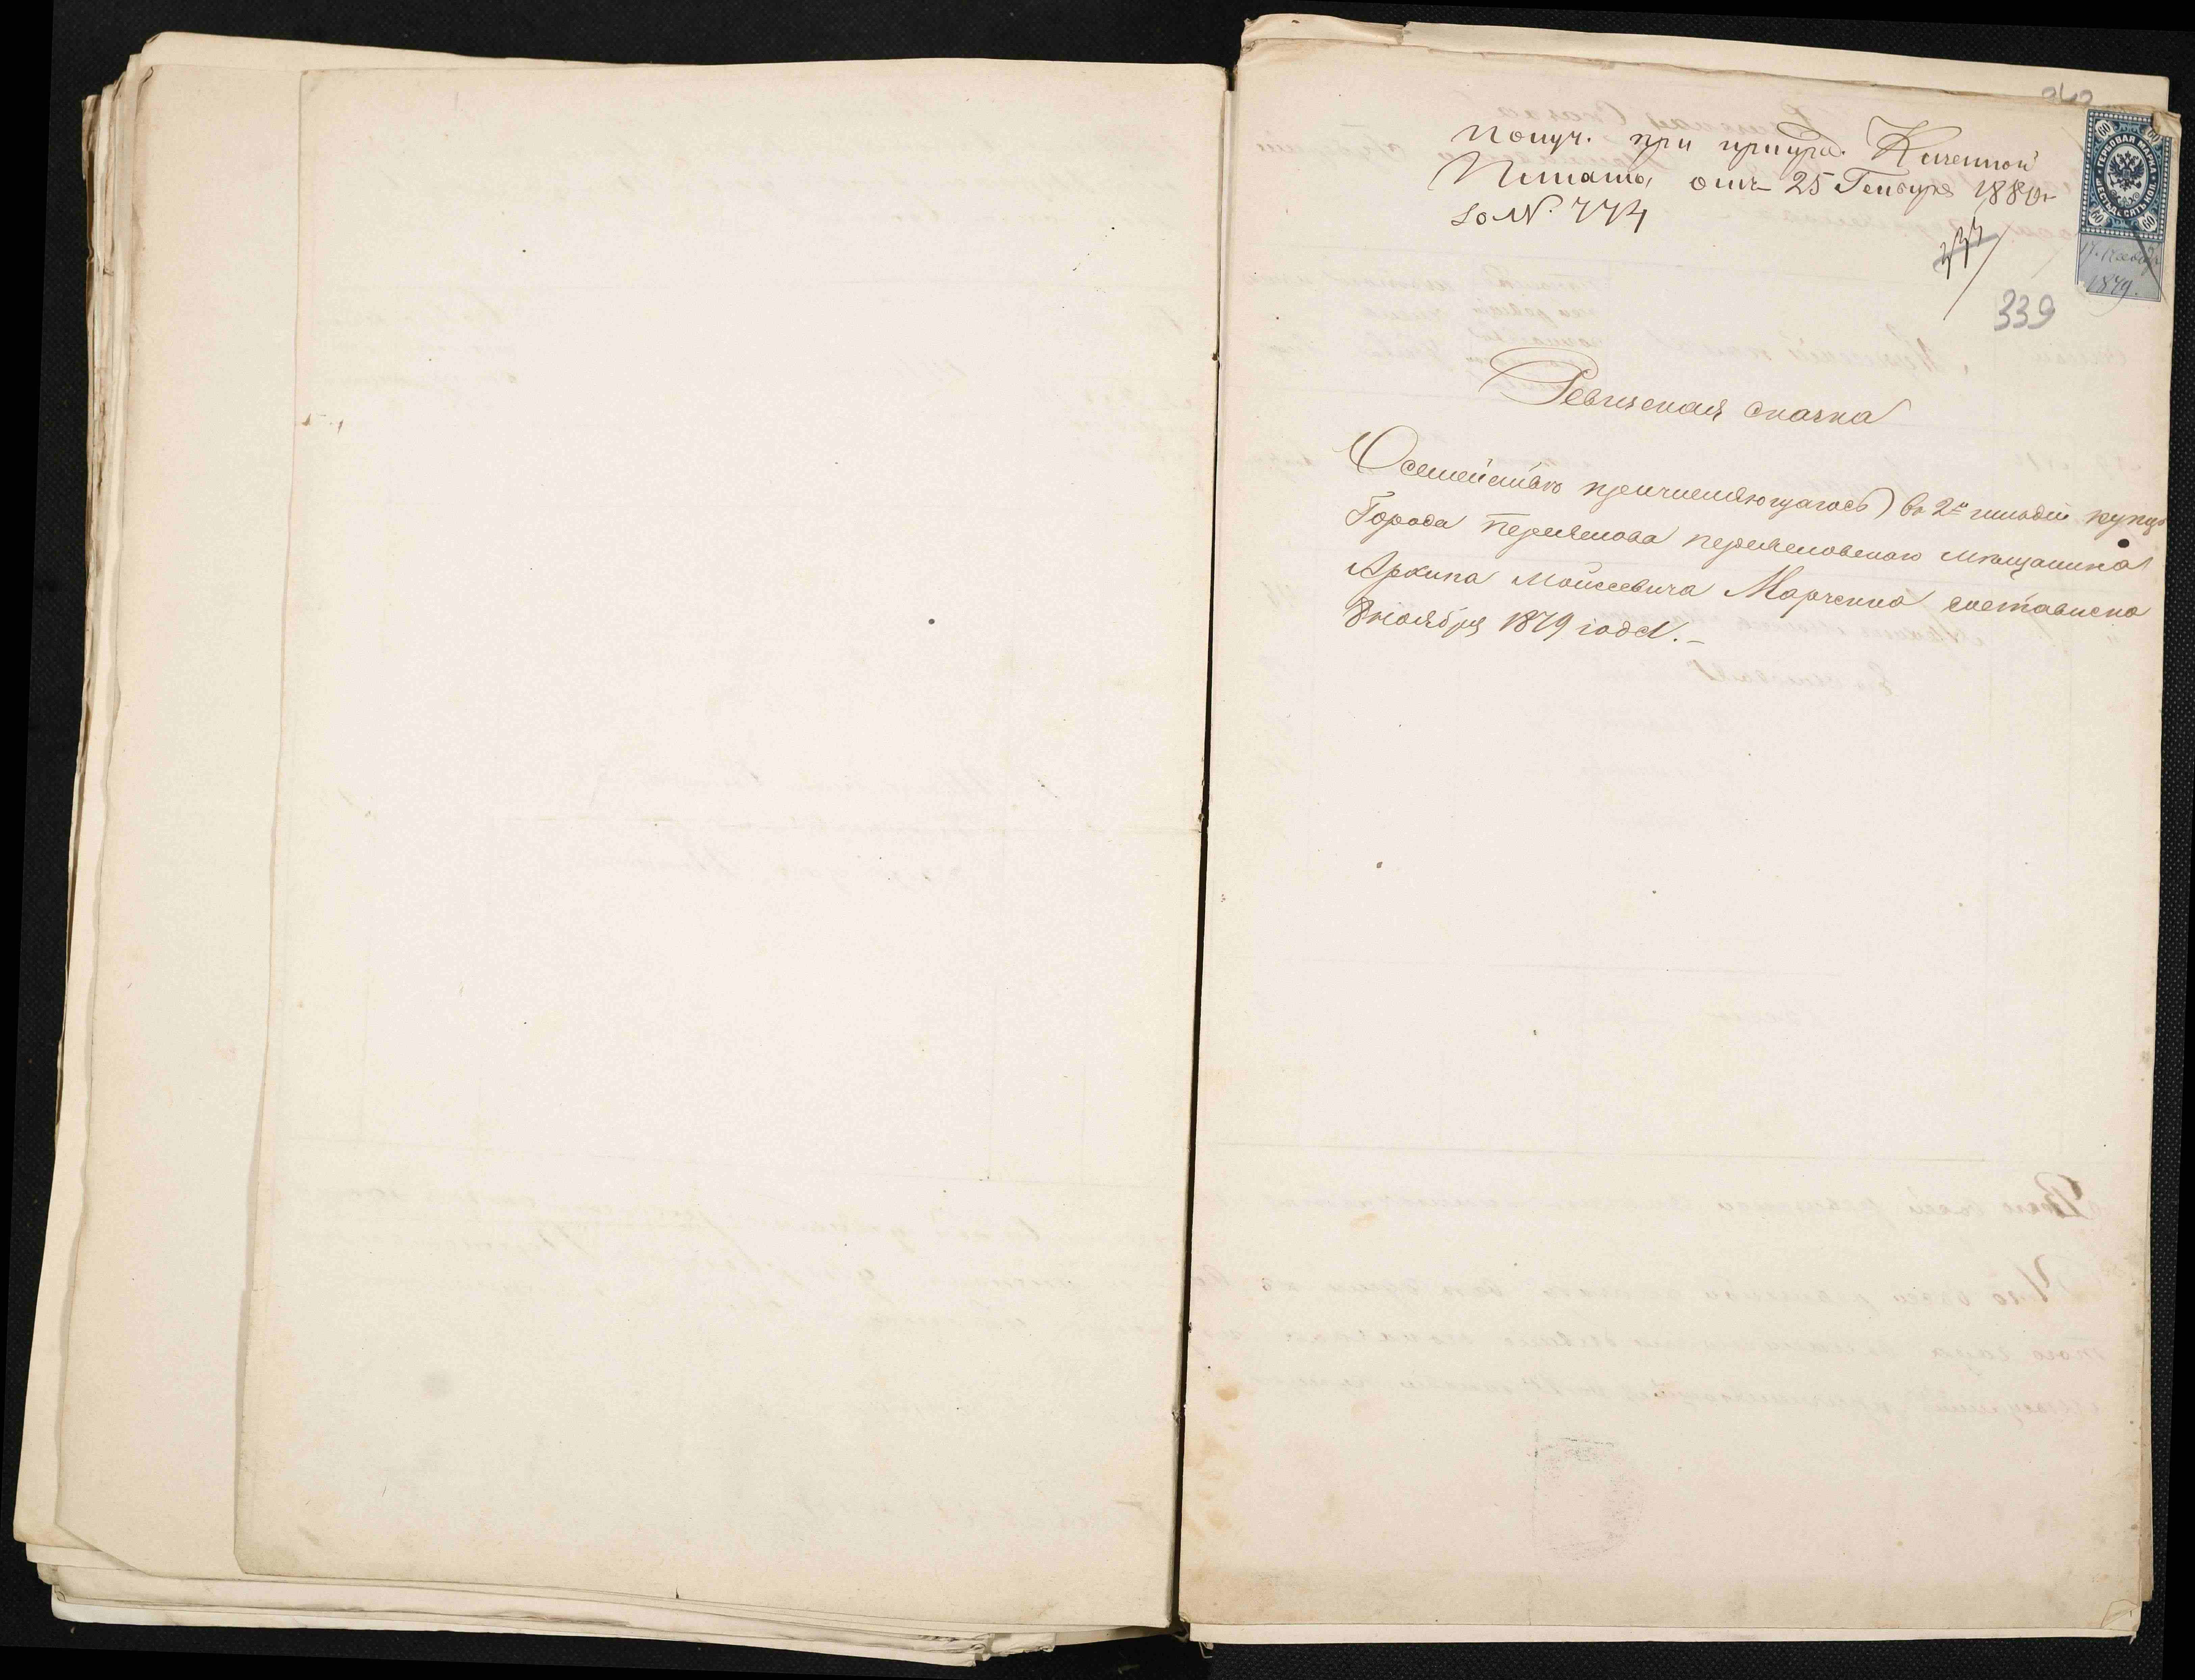 получ. при предпис. Казенной
Палаты отъ 25 Генваря 1880 г
за №. 774
339
ГЕРБОВАЯ МАРКА
ШЕСТЬДЕСЯТЪ КОП.
60
60
60
60
17. Ноября
1879.
Ревизская сказка
О семействѣ причисляющагося въ 2й гильдіи купцы
Города Переяслова переясловскаго мѣщанина
Архипа Моисеевича Марченко составлена
8 ноября 1879 года.